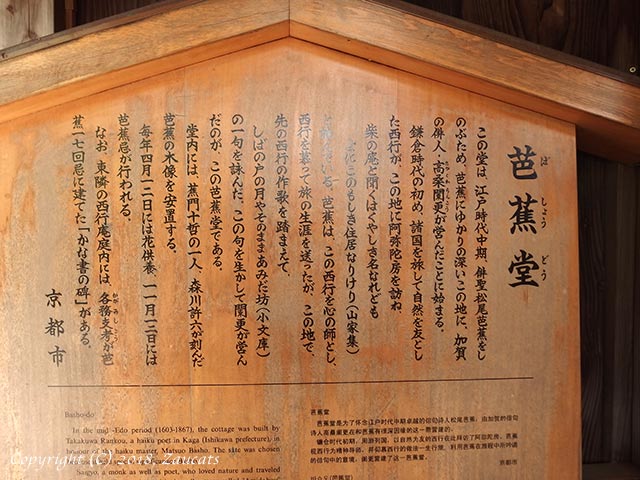 芭蕉堂
ばしょうどう
この堂は、江戸時代中期、俳聖松尾芭蕉をし
のぶため、芭蕉にゆかりの深いこの地に、加賀
の俳人・高桑闌更が営んだことに始まる。
鎌倉時代の初め、諸国を旅して自然を友とし
た西行が、この地に阿弥陀房を訪ね
柴の庵と聞くはくやしき名なれども
よにこのもしき住居なりけり(山家集)
と、芭蕉は、この西行を心の師とし、
西行を慕って旅の生涯を送ったが、この地で、
先の西行の作歌を踏まえて、
しばの戸の月やそのままあみだ坊(小文庫)
の一句を詠んだ。この句を生かして闌更が営ん
だのが、この芭蕉堂である。
堂内には、蕉門十哲の一人、森川許六が刻んだ
芭蕉の木像を安置する。
毎年四月一二日には花供養、一一月一二日には
芭蕉忌が行われる。
なお、東隣の西行庵庭内には、各務支考が芭
かがみしこう
蕉一七回忌に建てた「かな書の碑」がある。
京都市
Basho-do
In the mid -Edo period (1603-1867), the cottage was built by
Takakuwa Rankou, a haiku poet in Kaga (Ishikawa prefecture), in
honour of the haiku master, Matsuo Basho. The site was chosen
Saigyo, a monk as well as poet, who loved nature and traveled
芭蕉堂
芭蕉堂是为了怀念江户时代中期卓越的俳句诗人松尾芭蕉，由加贺的俳句
诗人高桑阑更在和芭蕉有很深因缘的这一带营建的。
镰仓时代初期，周游列国、以自然为友的西行在此拜访了阿弥陀房。芭蕉
视西行为精神导师，并仰慕西行的做法一生行旅，利用芭蕉在旅程中所吟诵
的俳句中的意境，阑更营建了这一芭蕉堂。
京都市
Copyright (C) 2018, Zaucats